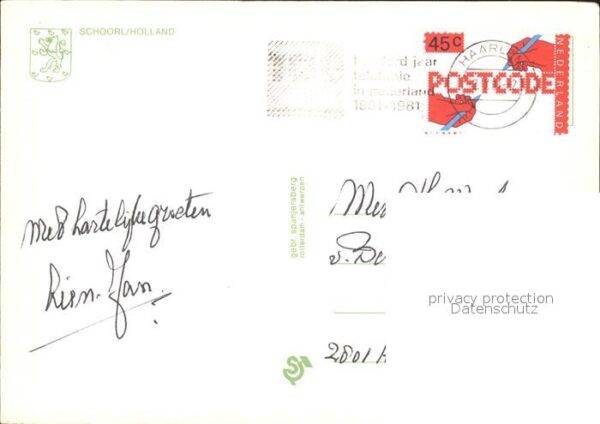 SCHOORL/HOLLAND
honderd jaar
telefonie
in nederland
1881-1981
HAARLE
45c
POSTCODE
NEDERLAND
met hartelijke groeten
Rien. Jan.
gebr. spanjersberg
rotterdam - antwerpen
v. Be
privacy protection
Datenschutz